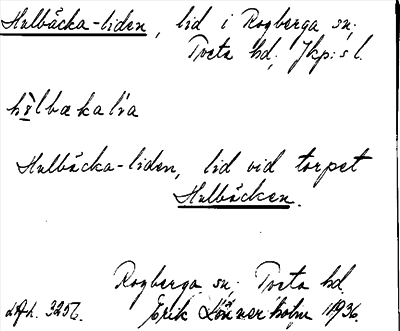 Hulbäcka-liden, lid i Rogberga sn;
Tveta hd; Jkp:s l.
Hulbäcka-liden, lid vid torpet
Hulbäcken.
Rogberga sn; Tveta hd
3256. Erik Lönnerholm 1936.